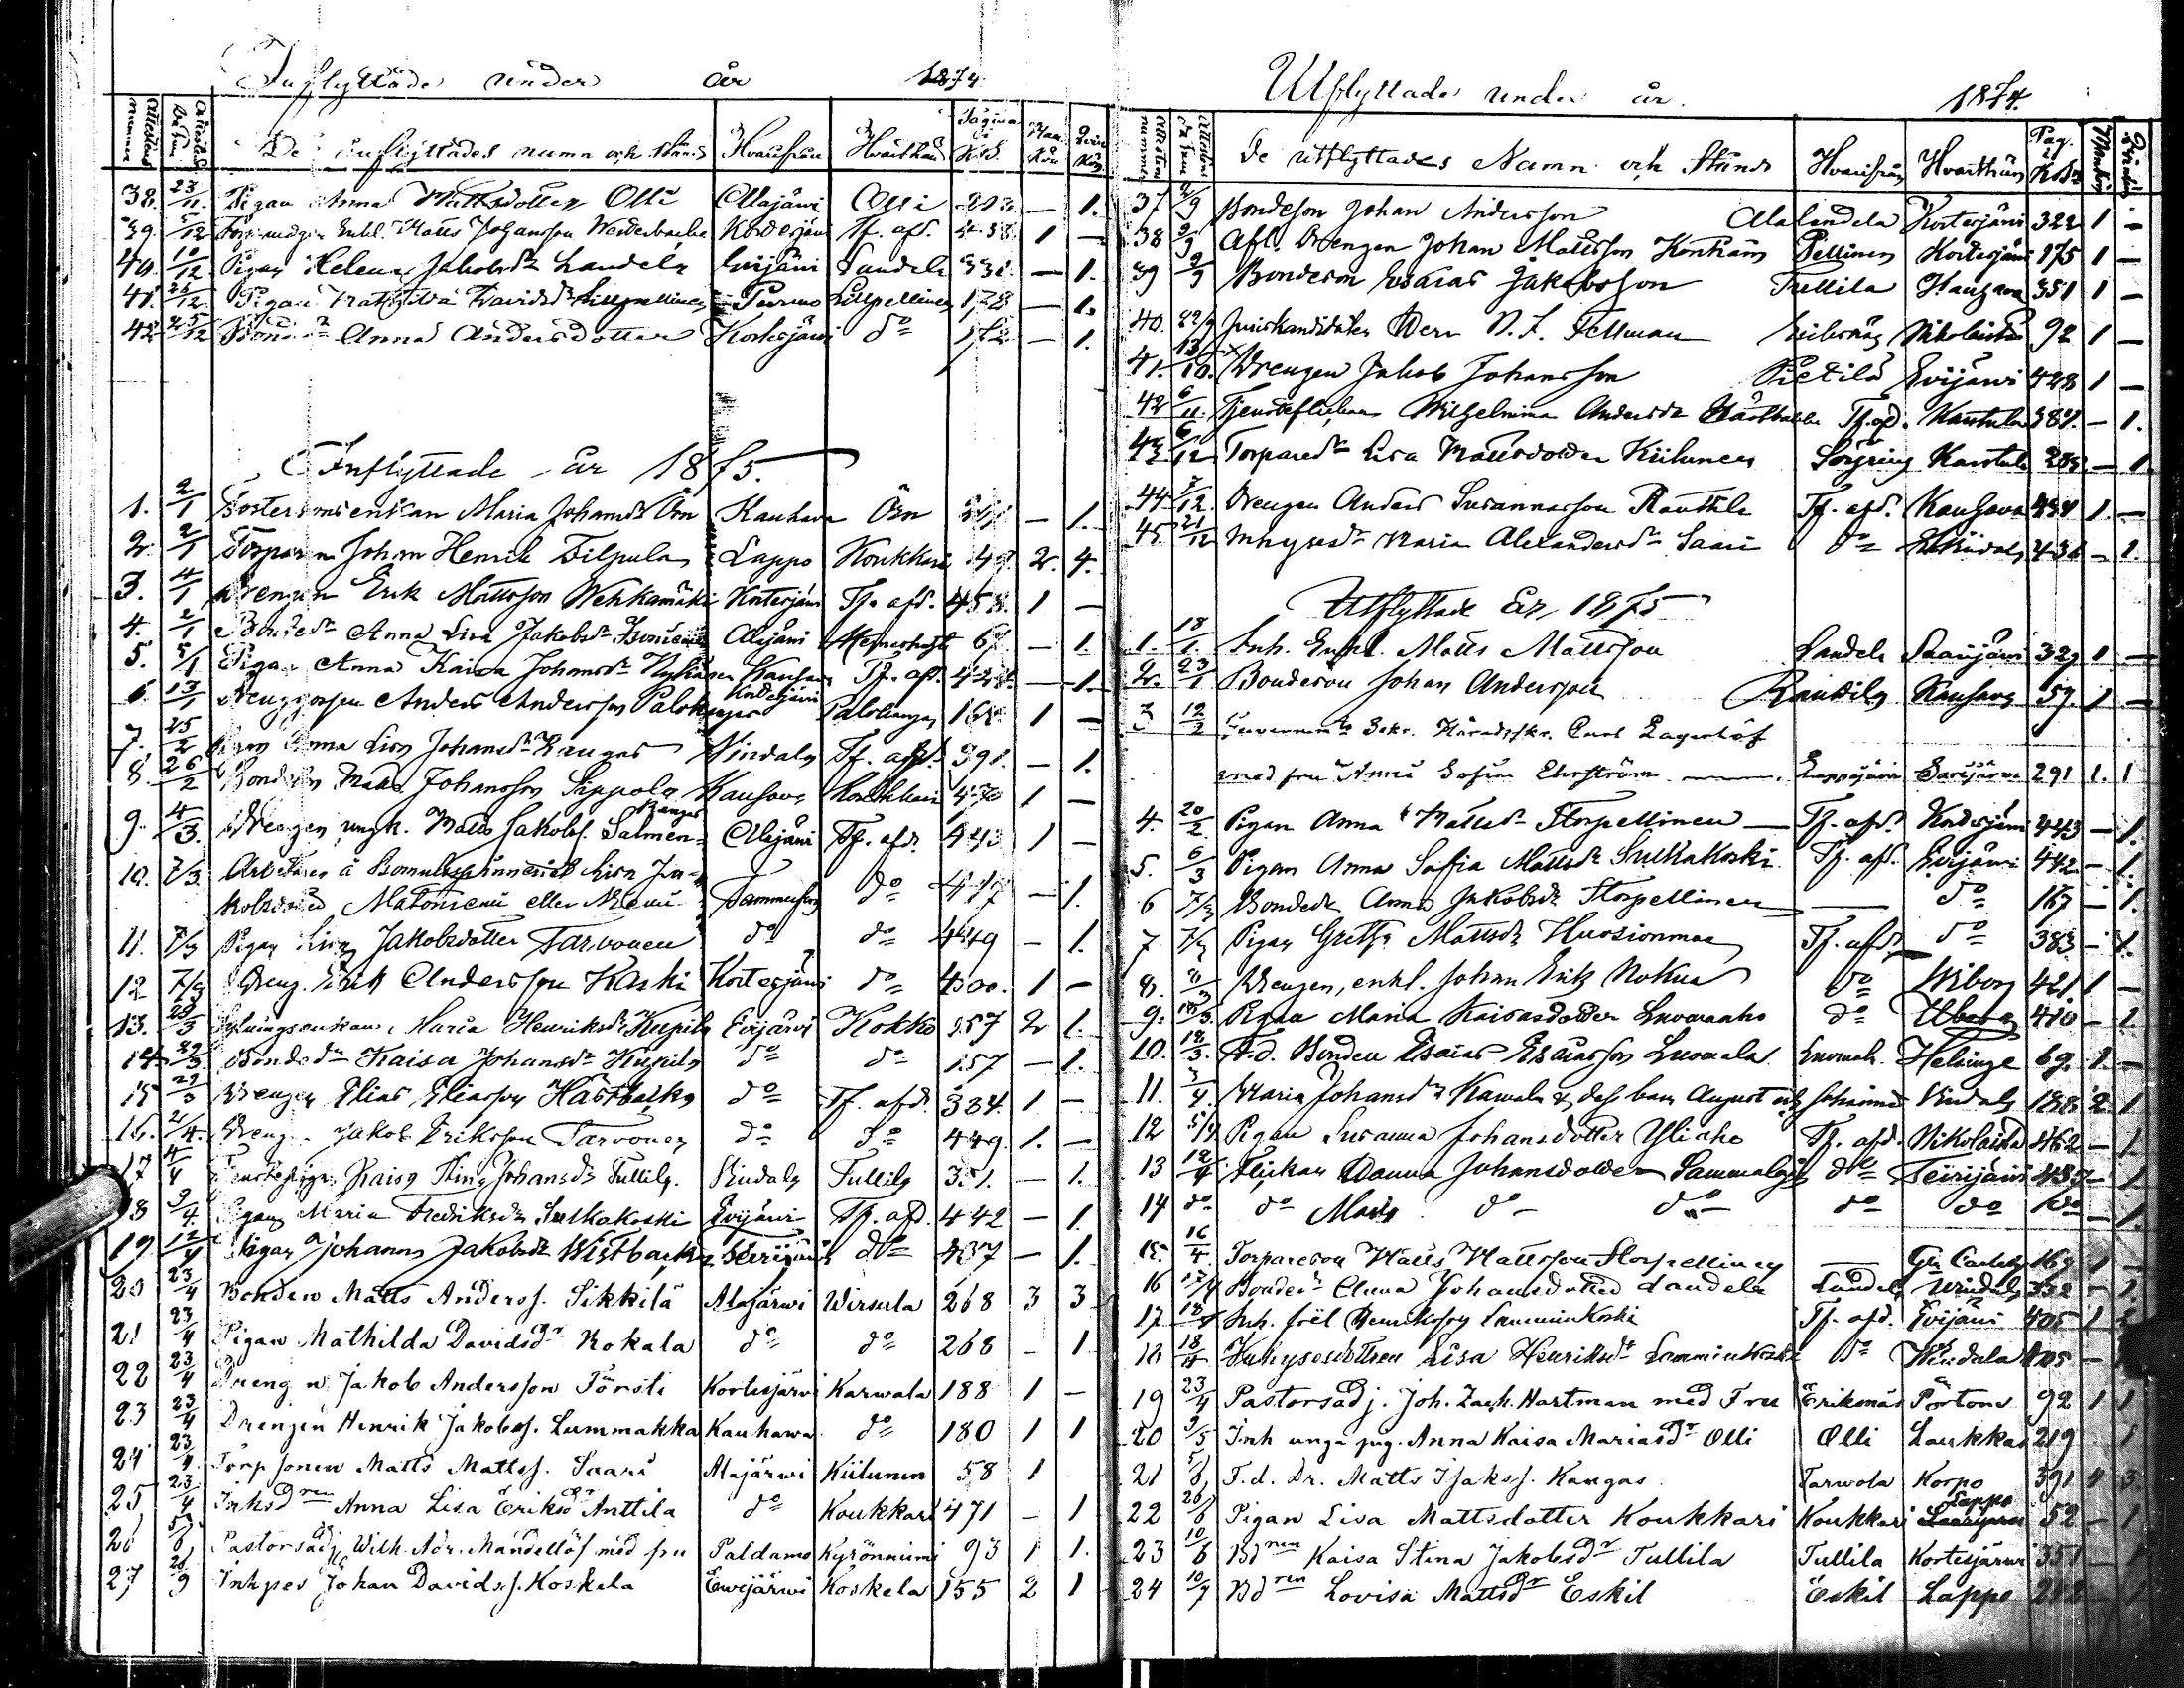 Inflyttade under år 1874.
Attestens nummer Attestens Datum De inflyttades namn och stånd Hvarifrån Hvarthän Pagina i K.B. Man Kön Qvin Kön
38. 23/11. Pigan Anna Mattsdotter Olli Alajärvi Olli 203. — 1.
39. 5/12 Enkl. Matts Johansson Kortesjärvi Tf. afd. 438. 1 —
40. 10/12 Pigan Helena Jakobsdr Landela Evijärvi Landela 332. — 1.
41. 26/12 Pigan Mathilda Davidsdr Lillpellinen Purmo Lillpellinen 178 — 1.
42 25/12 Anna Andersdotter Kortesjärvi do 172 — 1.
Inflyttade år 1875.
1. 2/1 Maria Johansdr Örn Kauhava Örn — 1.
2. 2/1 Torparen Johan Henrik Filpula Lappo Koukkari 47. 2. 4.
3. 4/1 Drengen Erik Mattsson Wehkamäki Kortesjärvi Tf. afd. 458. 1 —
4. 2/1 Bondedr Anna Lisa Jakobsdr Alajärvi 67. — 1.
5. 5/1 Pigan Anna Kaisa Johansdr Kauhava Tf. afd. 428. — 1.
6. 13/1 Anders Andersson Palokangas Kortesjärvi Palokangas 168. 1 —
7. 25/2 Pigan Anna Lisa Johansdr Kangas Vindala Tf. afd. 391. — 1.
8. 26/2 Bondeson Matts Johansson Sippola Kauhava Koukkari 470 1 —
9. 4/3. Drengen ungk. Matts Jakobss. Salmen Kangas Alajärvi Tf. afd. 443 1 —
10. 7/3. Arbeterskan å Bomullsspinneriet Lisa Ja-
kobsdotter Matoniemi eller Niemi Tammerfors do 417 — 1.
11. 7/3 Pigan Lisa Jakobsdotter Tarvonen do do 449 — 1.
12 7/3 Dreng. Erik Andersson Kaski Kortesjärvi do 400. 1 —
13. 28/3 Maria Henriksdr Kupila Evijärvi Kokko 157 2 1.
14. 29/3. Bondedr Kaisa Johansdr Kupila do do 157 — 1.
15 29/3 Drengen Elias Eliasson Hästbacka do Tf. afd. 334. 1 —
16. 2/4. Dreng. Jakob Eriksson Tarvonen do do 449. 1. —
17 4/4 Kaisa Stina Johansdr Tullila. Vindala Tullila 351. — 1.
18 9/4. Pigan Maria Fredriksdr Sulkakoski Evijärvi Tf. afd. 442 — 1.
19 12/4 Pigan Johanna Jakobsdr Wistbacka Terijärvi do 437 — 1.
20 23/4 Bonden Matts Anderss. Sikkilä Alajärwi Wirsula 268 3 3
21 23/4 Pigan Mathilda Davidsdr Kokala do do 268 — 1
22 23/4 Dreng n Jakob Andersson Försti Kortesjärvi Karwala 188 1 —
23 23/4 Drengen Henrik Jakobss. Lummakka Kauhawa do 180 1 1
24 23/4. Torpsonen Matts Mattss. Saari Alajärwi Kiilunen 58 1
25 23/4 Inhsdren Anna Lisa Eriksdr Anttila do Koukkari 471 — 1
26 5/8 Pastorsadj. Wilh. Adr. Mandellöf med fru Paldamo Kyrönniemi 93 1 1.
27 26/9 Inhyses Johan Davidss. Koskela Ewijärwi Koskela 155 2 1
Utflyttade under år. 1874.
Attestens nummer Attestens Datum De utflyttades Namn och Stånd Hvarifrån Hvarthän Pag. K.B. Mankön Qvinkön
37 2/9 Bondeson Johan Andersson Alalandela Kortesjärvi 322 1 —
38 2/9 Afl. Drengen Johan Mattsson Pellinen Kortesjärvi 175 1 —
39 2/9 Bondeson Esaias Jakobsson Tullila Kauhava 351 1 —
40. 22/9 Juriskandidaten Herr N. J. Fellman Eriksnäs Nikolaistad 92 1 —
41. 13/10. Drengen Jakob Johansson Pietilä Evijärvi 428 1 —
42 6/11. Tjensteflickan Wilhelmina Andersdr Hästbacka Tf. afd. Karstula 387. — 1.
43 6/12 Torparedr Lisa Mattsdotter Kiilunen Karstula — 1
44 7/12. Drengen Anders Susannasson Rauttila Tf. afd. Kauhava 434 1. —
45. 21/12 Inhysesdr Maria Alexandersdr Saari do Vindala 436 — 1.
Utflyttade År 1875
1. 18/1. Inh. Enkl. Matts Mattsson Landela Saarijärvi 329 1 —
2. 23/1 Bondeson Johan Andersson Rauttila Kauhava 59. 1 —
3 12/2 Guvernements Sekr. Häradsskr. Carl Lagerlöf
med fru Anna Sofia Ehrström Lappajärvi Saarijärvi 291 1. 1
4. 20/2. Pigan Anna Mattsdr Storpellinen — Tf. afd. Kortesjärvi 443 — 1.
5. 6/3 Pigan Anna Sofia Mattsdr Sulkakoski Tf. afd. Evijärvi 442 — 1.
6 7/3 Bondedr Anna Jakobsdr Storpellinen — do 167 — 1.
7. 7/3 Pigan Greta Mattsdr Huosionmaa Tf. afd. do 383 — 1.
8. Drengen, enkl. Johan Erik Nokua do Wiborg 421 1 —
9. Pigan Maria Kaisasdotter Luomaaho do Uleåborg 410 — 1.
10. 18/3. F.d. Bonden Esaias Esaiasson Luomala Luomala Helsinge 69. 1. —
11. 3/4. Maria Johansdr Kawala & dess barn August och Johanna Vindala 188 2 1
12 5/4 Pigan Susanna Johansdotter Yliaho Tf. afd. Nikolaistad 462 — 1.
13 12/4 Flickan Sanna Johansdotter Sammaloja do Terijärvi 437 — 1.
14 do do Maria do do do do do — 1.
15. 16/4 Torpareson Matts Mattsson Storpellinen — Gla Carleby 169 1 —
16 17/4 Bondedr Anna Johansdotter Landela Landela Windala 332 — 1
17 18/4 Inh. Joël Henriksson Lamminkoski Tf. afd. Evijärvi 405 1 2
18 18/4 Inhysesdottren Lisa Henriksdr Lamminkoski do Windala 405 — 1
19 23/4 Pastorsadj. Joh. Zach. Hartman med Fru Eriksnäs Pörtom 92 1 1
20 3/5 Inh unga pig. Anna Kaisa Mariasdr Olli Olli Laukkas 219 1
21 5/6 F.d. Dr. Matts Isakss. Kangas Tarwola Korpo 391 4 3.
22 20/6 Pigan Lisa Mattsdotter Koukkari Koukkari Lappo 52 — 1
23 10/6 Bdren Kaisa Stina Jakobsdr Tullila Tullila Kortesjärwi 351 — 1
24 10/7 Bdren Lovisa Mattsdr Eskil Eskil Lappo 242 — 1